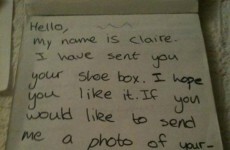 Hello,
my name is claire.
I have sent you
your shoe box. I hope
you like it. If you
would like to send
me a photo of your-